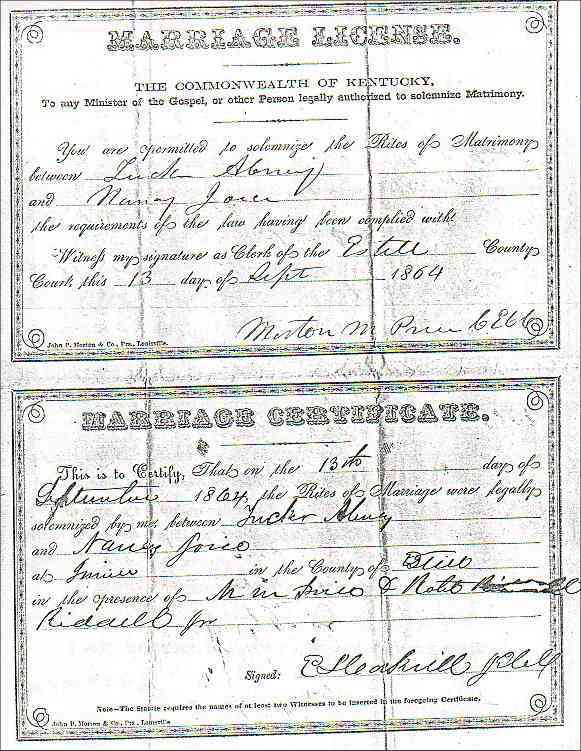 MARRIAGE LICENSE.
THE COMMONWEALTH OF KENTUCKY,
To any Minister of the Gospel, or other Person legally authorized to solemnize Matrimony.
You are permitted to solemnize the Rites of Matrimony
between Tucker Abney
and Nancy Joice
the requirements of the law having been complied with.
Witness my signature as Clerk of the Estill County
Court, this 13 day of Sept 1864
Morton M Price C.E.C.C.
John P. Morton & Co., Prs., Louisville.
MARRIAGE CERTIFICATE.
This is to Certify, That on the 13th day of
September 1864, the Rites of Marriage were legally
solemnized by me, between Tucker Abney
and Nancy Joice
at Irvine in the County of Estill
in the presence of M M Price & Robt
Riddell Jr
Signed:
Note—The Statute requires the names of at least two Witnesses to be inserted in the foregoing Certificate.
John P. Morton & Co., Prs., Louisville